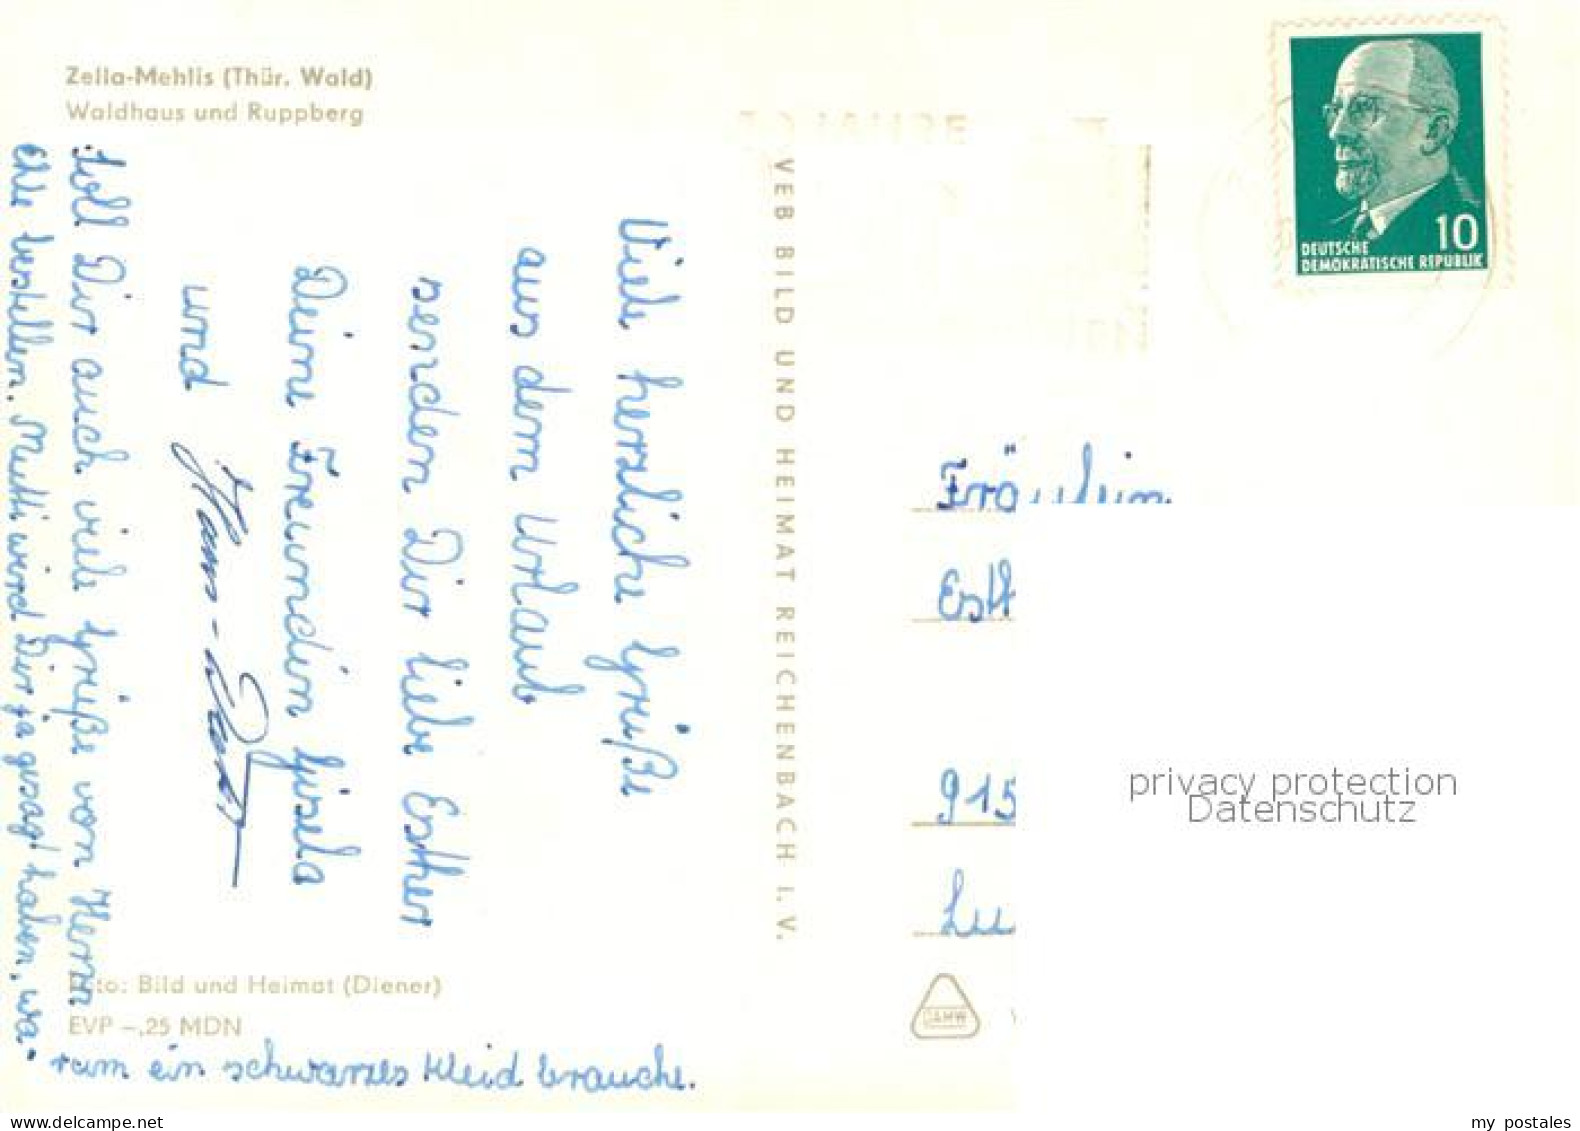 Zella-Mehlis (Thür. Wald)
Waldhaus und Ruppberg
Viele herzliche Grüße
aus dem Urlaub
senden Dir liebe Esther
Deine Freundin Gisela
und
Soll Dir auch viele Grüße von Herrn
bestellen. Mutti wird Dir ja gesagt haben, wa-
rum ein schwarzes Kleid brauche.
VEB BILD UND HEIMAT REICHENBACH I. V.
Foto: Bild und Heimat (Diener)
EVP –,25 MDN
DEUTSCHE
DEMOKRATISCHE REPUBLIK
10
Fräulein
Esth
915
Lu
privacy protection
Datenschutz
my postales